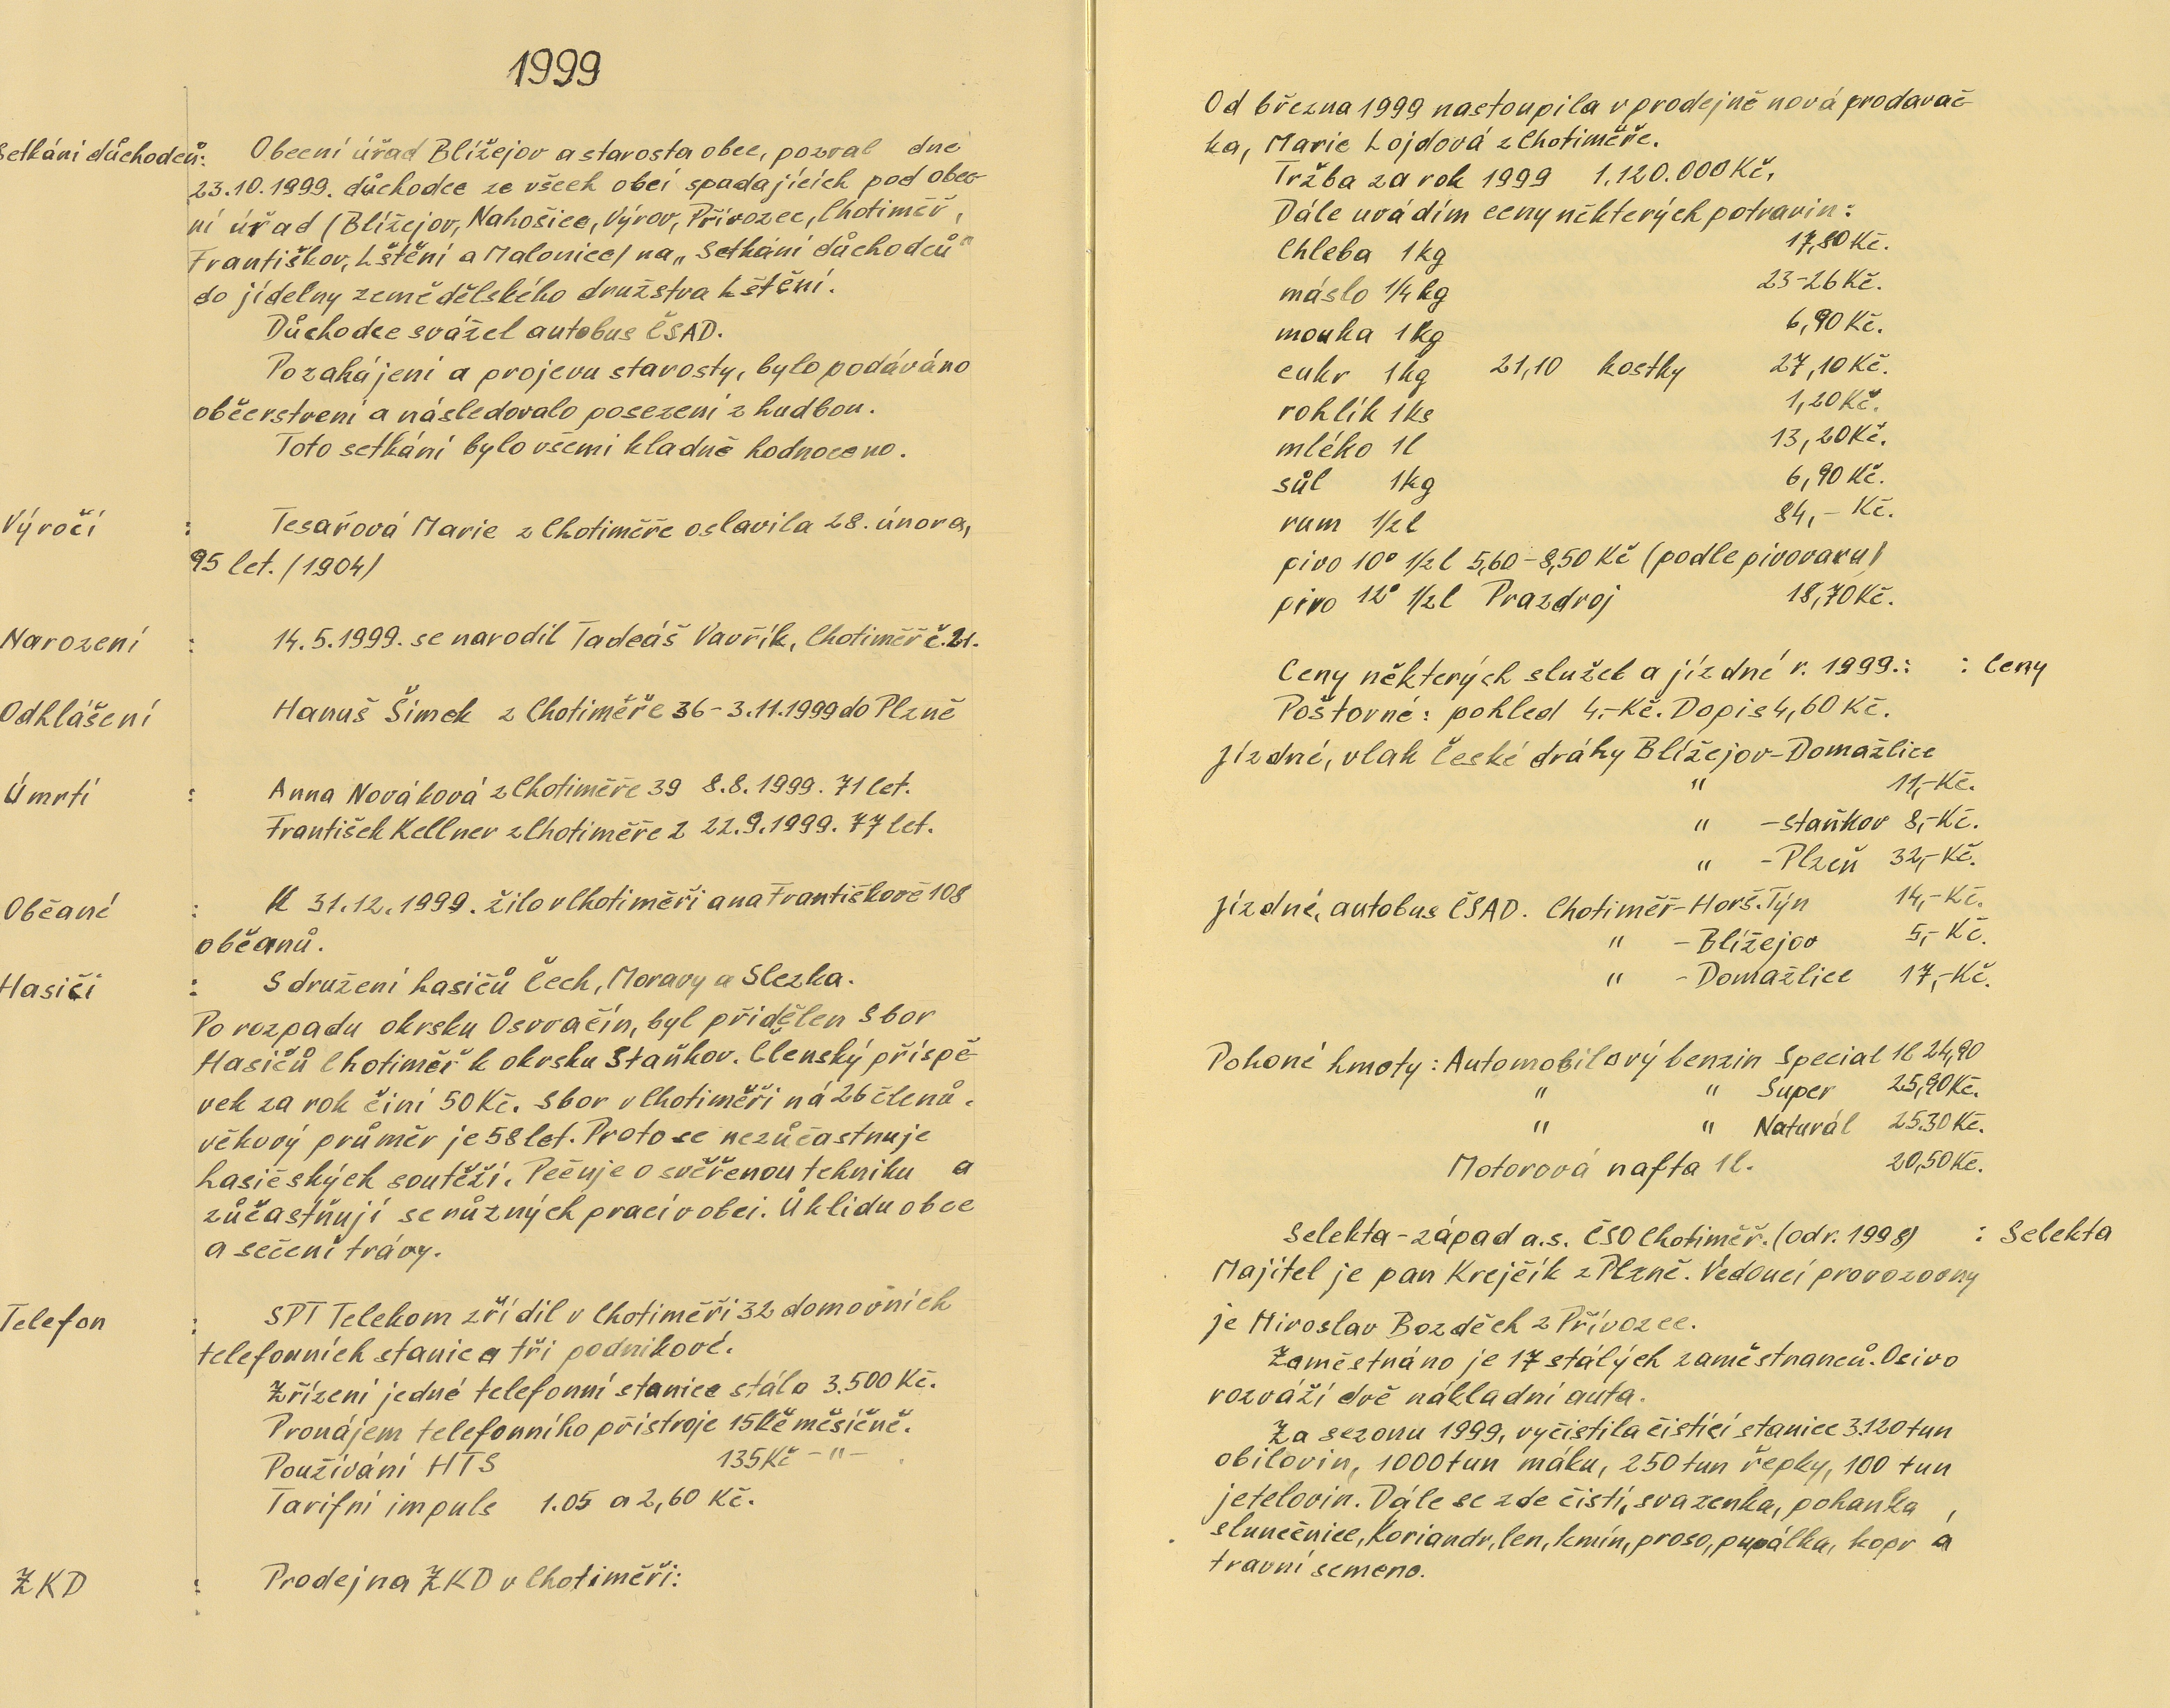 1999
Setkání důchodců: Obecní úřad Blížejov a starosta obce, pozval dne
23.10.1999. důchodce ze všech obcí spadajících pod obec-
ní úřad (Blížejov, Nahošice, Výrov, Přívozec, Chotiměř,
Františkov, Lštění a Malonice) na „Setkání důchodců"
do jídelny zemědělského družstva Lštění.
Důchodce svážel autobus ČSAD.
Po zahájení a projevu starosty, bylo podáváno
občerstvení a následovalo posezení z hudbou.
Toto setkání bylo všemi kladně hodnoceno.
Výročí : Tesařová Marie z Chotiměře oslavila 28. února,
95 let. (1904)
Narození : 14.5.1999. se narodil Tadeáš Vavřík, Chotiměř č.21.
Odhlášení Hanuš Šimek z Chotiměře 36 - 3.11.1999 do Plzně
Úmrtí : Anna Nováková z Chotiměře 39 8.8.1999. 71 let.
František Kellner z Chotiměře 2 22.9.1999. 77 let.
Občané : K 31.12.1999. žilo v Chotiměři a na Františkově 108
občanů.
Hasiči : Sdružení hasičů Čech, Moravy a Slezka.
Po rozpadu okrsku Osvračín, byl přidělen Sbor
Hasičů Chotiměř k okrsku Staňkov. Členský příspě-
vek za rok činí 50 Kč. Sbor v Chotiměři ná 26 členů.
věkový průměr je 58 let. Proto se nezůčastnuje
hasičských soutěží. Pečuje o svěřenou tehniku a
zůčastňují se různých prací v obci. Úklidu obce
a sečení trávy.
Telefon : SPT Telekom zřídil v Chotiměři 32 domovních
telefonních stanic a tři podnikové.
Zřízení jedné telefonní stanice stálo 3.500 Kč.
Pronájem telefonního přístroje 15 Kč měsíčně.
Používání HTS 135 Kč -"-
Tarifní impuls 1.05 a 2,60 Kč.
ZKD : Prodejna ZKD v Chotiměři:
Od března 1999 nastoupila v prodejně nová prodavač-
ka, Marie Lojdová z Chotiměře.
Tržba za rok 1999 1,120.000 Kč,
Dále uvádím ceny některých potravin:
Chleba 1kg 17,80 Kč.
máslo 1/4 kg 23-26 Kč.
mouka 1kg 6,90 Kč.
cukr 1kg 21,10 kostky 27,10 Kč.
rohlík 1ks 1,20 Kč.
mléko 1l 13,20 Kč.
sůl 1kg 6,90 Kč.
rum 1/2 l 84,- Kč.
pivo 10° 1/2 l 5,60 - 8,50 Kč (podle pivovaru)
pivo 12° 1/2 l Prazdroj 18,70 Kč.
Ceny některých služeb a jízdné r. 1999.: : Ceny
Poštovné: pohled 4,- Kč. Dopis 4,60 Kč.
Jízdné, vlak České dráhy Blížejov - Domažlice
" 11,- Kč.
" - Staňkov 8,- Kč.
" - Plzeň 32,- Kč.
Jízdné, autobus ČSAD. Chotiměř - Horš. Týn 14,- Kč.
" - Blížejov 5,- Kč.
" - Domažlice 17,- Kč.
Pohoné hmoty: Automobilový benzin Special 1l 24,90
" " Super 25,90 Kč.
" " Naturál 25.30 Kč.
Motorová nafta 1l. 20,50 Kč.
Selekta - západ a.s. ČSO Chotiměř. (od r. 1998) : Selekta
Majitel je pan Krejčík z Plzně. Vedoucí provozovny
je Miroslav Bozděch z Přívozce.
Zaměstnáno je 17 stálých zaměstnanců. Osivo
rozváží dvě nákladní auta.
Za sezonu 1999, vyčistila čistící stanice 3.120 tun
obilovin, 1000 tun máku, 250 tun řepky, 100 tun
jetelovin. Dále se zde čistí, svazenka, pohanka,
slunečnice, Koriandr, len, kmín, proso, pupálka, kopr a
travní semeno.